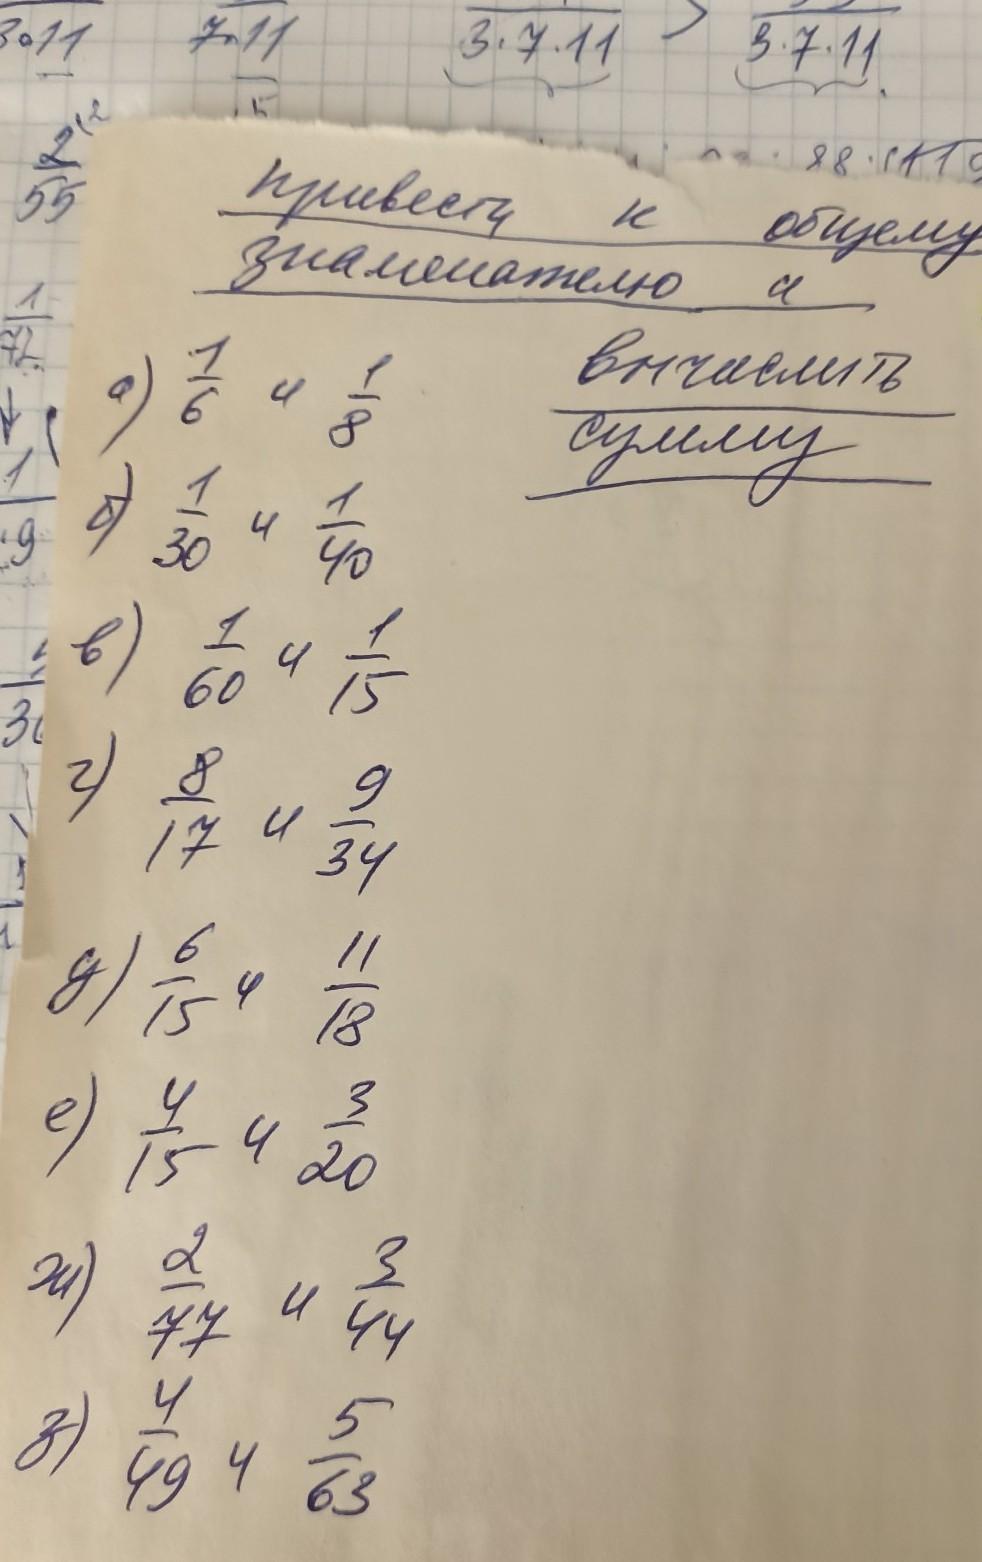 3·11 7·11 3·7·11 > 3·7·11
2/55
привести к общему
знаменателю и
вычислить
сумму
а) 1/6 и 1/8
б) 1/30 и 1/40
в) 1/60 и 1/15
г) 8/17 и 9/34
д) 6/15 и 11/18
е) 4/15 и 3/20
ж) 2/77 и 3/44
з) 4/49 и 5/63